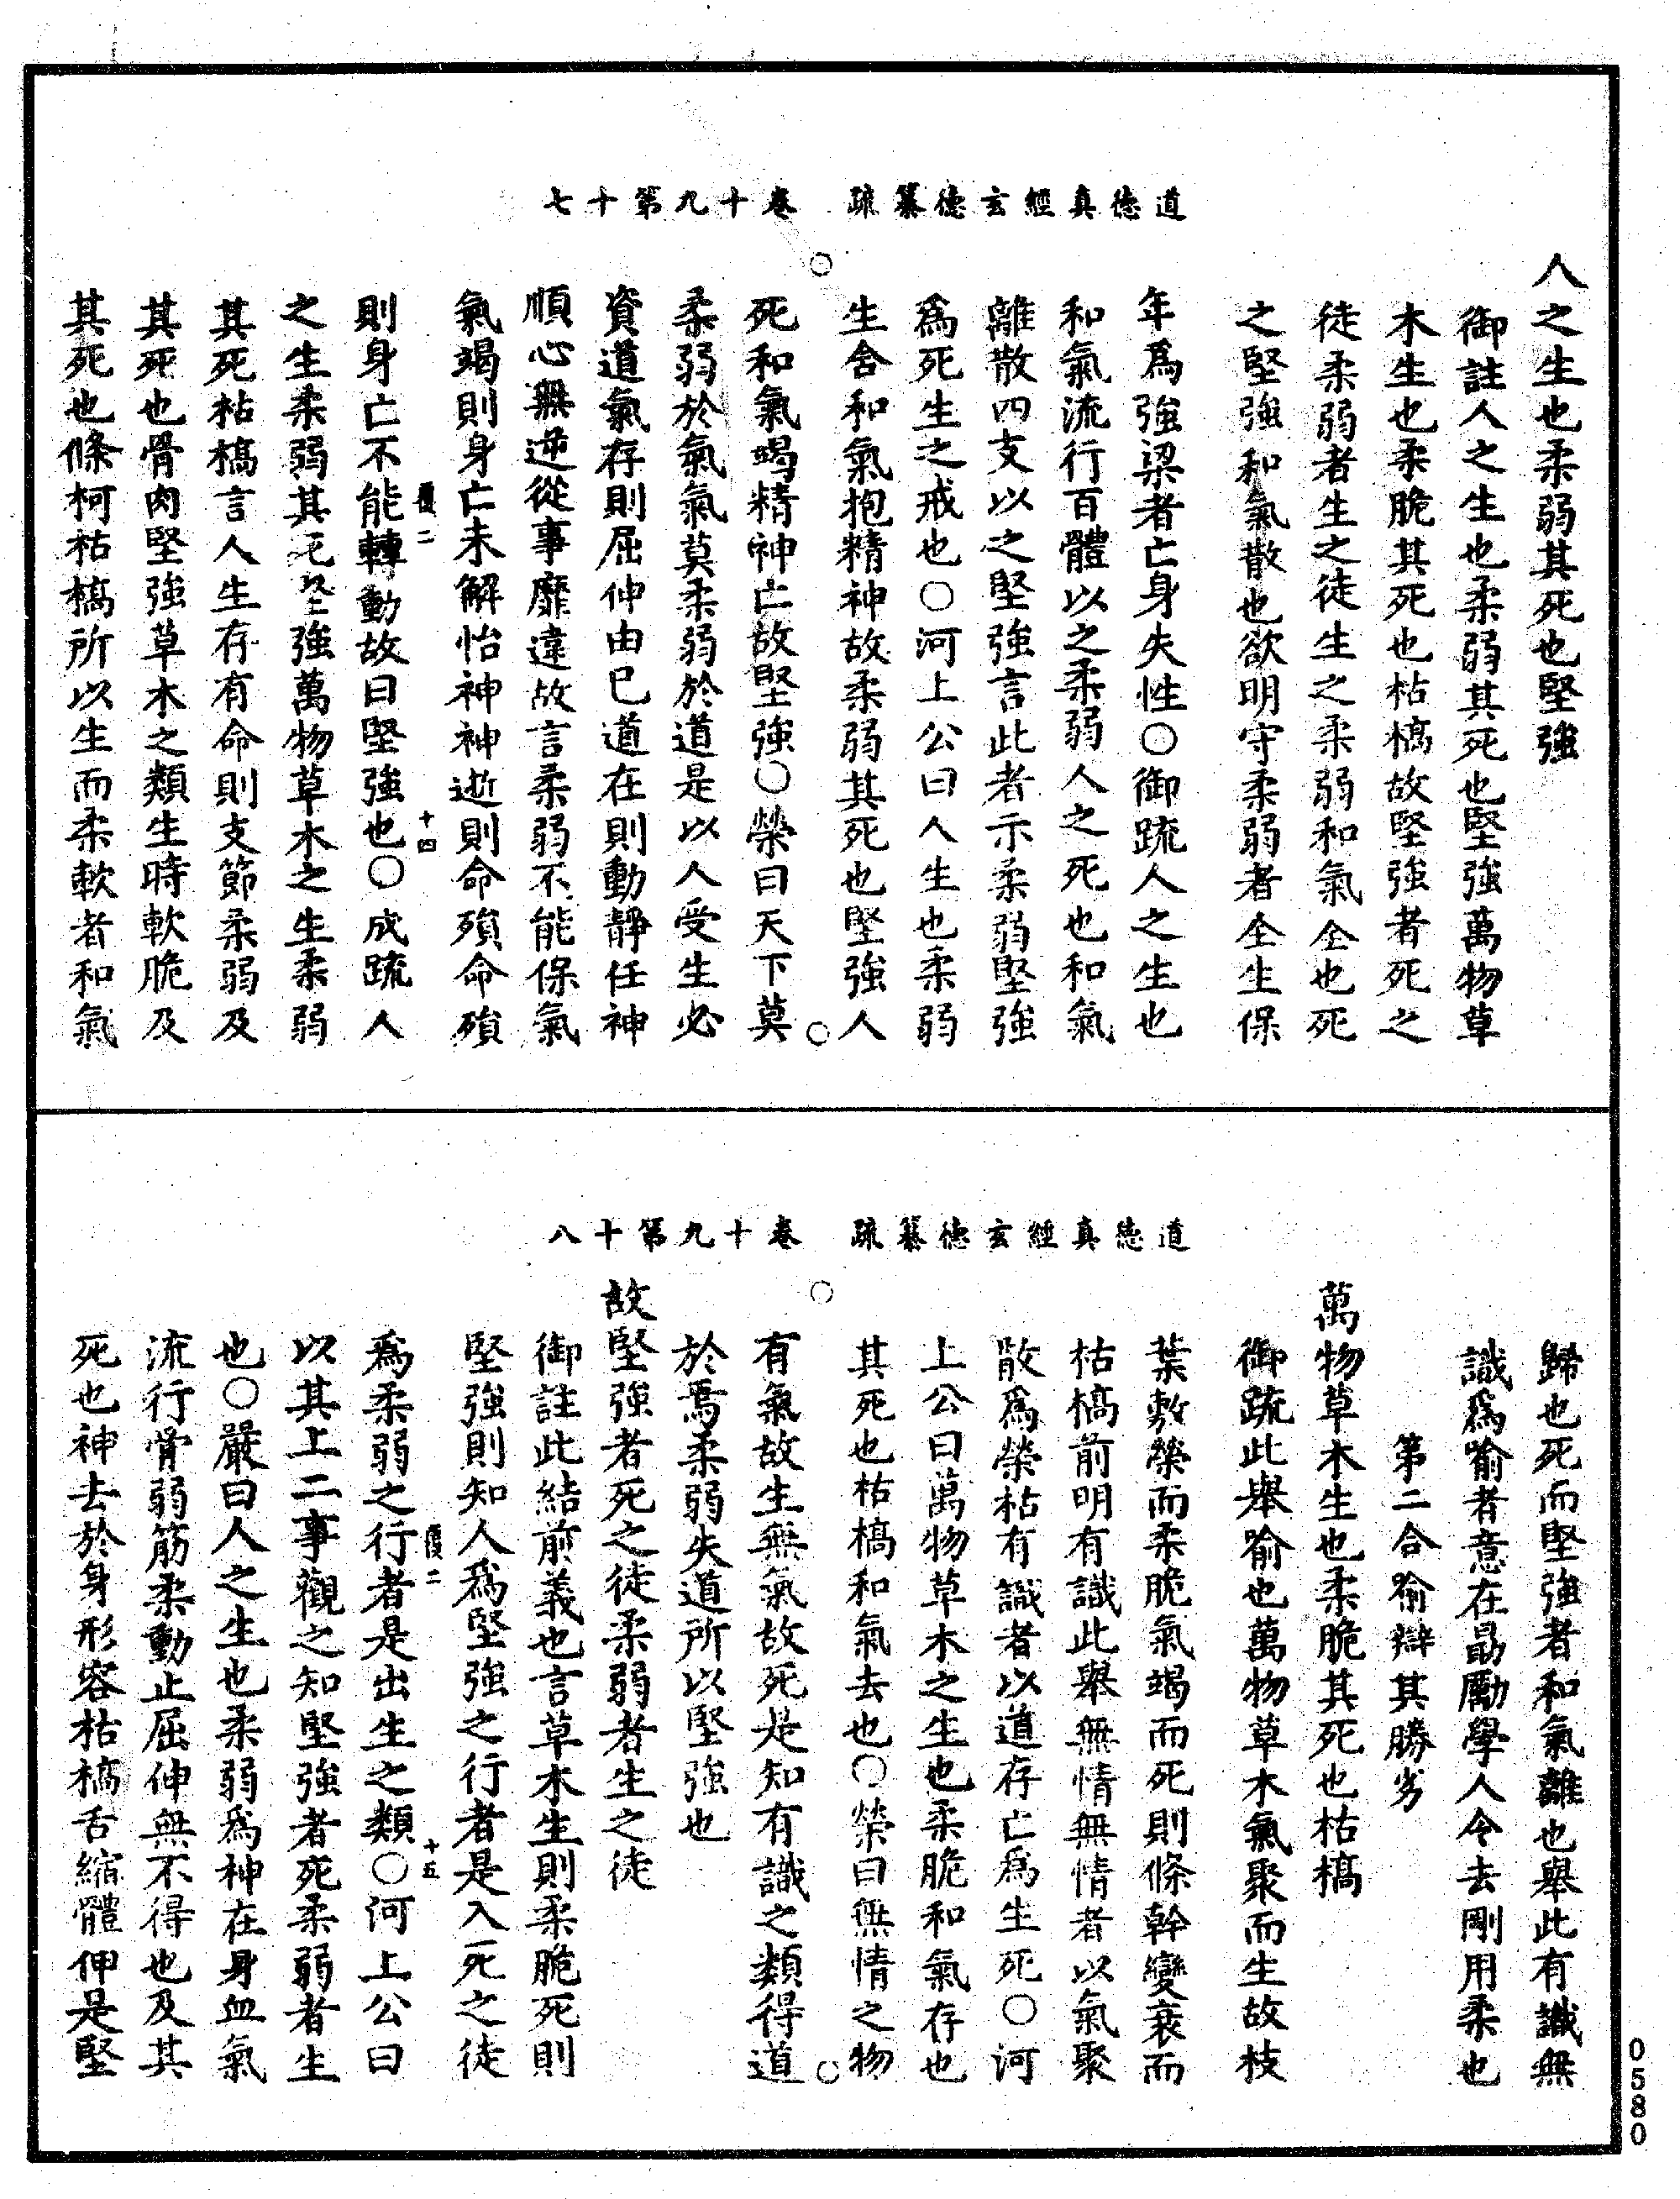 道德真經玄德纂疏　卷十九第十七
人之生也柔弱其死也堅強
御註人之生也柔弱其死也堅強萬物草
木生也柔脆其死也枯槁故堅強者死之
徒柔弱者生之徒生之柔弱和氣全也死
之堅強和氣散也欲明守柔弱者全生保
年爲強梁者亡身失性○御疏人之生也
和氣流行百體以之柔弱人之死也和氣
離散四支以之堅強言此者示柔弱堅強
爲死生之戒也○河上公曰人生也柔弱
生含和氣抱精神故柔弱其死也堅強人
死和氣竭精神亡故堅強○榮曰天下莫
柔弱於氣氣莫柔弱於道是以人受生必
資道氣存則屈伸由已道在則動靜任神
順心無逆從事靡違故言柔弱不能保氣
氣竭則身亡未解怡神神逝則命殞命殞
則身亡不能轉動故曰堅強也○成疏人
履二
十四
之生柔弱其死堅強萬物草木之生柔弱
其死枯槁言人生存有命則支節柔弱及
其死也骨肉堅強草木之類生時軟脆及
其死也條柯枯槁所以生而柔軟者和氣
道德真經玄德纂疏　卷十九第十八
歸也死而堅強者和氣離也舉此有識無
識爲喻者意在勗勵學人令去剛用柔也
第二合喻辯其勝劣
萬物草木生也柔脆其死也枯槁
御疏此舉喻也萬物草木氣聚而生故枝
葉敷榮而柔脆氣竭而死則條幹變衰而
枯槁前明有識此舉無情無情者以氣聚
散爲榮枯有識者以道存亡爲生死○河
上公曰萬物草木之生也柔脆和氣存也
其死也枯槁和氣去也○榮曰無情之物
有氣故生無氣故死是知有識之類得道
於焉柔弱失道所以堅強也
故堅強者死之徒柔弱者生之徒
御註此結前義也言草木生則柔脆死則
堅強則知人爲堅強之行者是入死之徒
爲柔弱之行者是出生之類○河上公曰
履二
十五
以其上二事觀之知堅強者死柔弱者生
也○嚴曰人之生也柔弱爲神在身血氣
流行骨弱筋柔動止屈伸無不得也及其
死也神去於身形容枯槁舌縮體伸是堅
0580